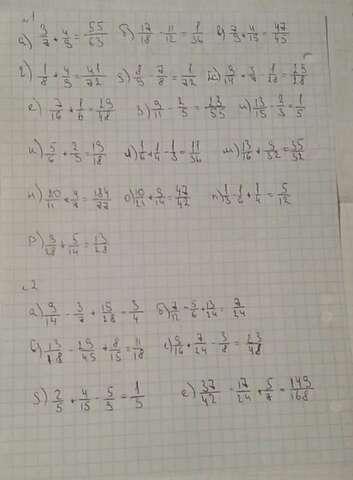 №1
а) 3/7 + 4/9 = 55/63 б) 17/18 - 11/12 = 1/36 в) 7/9 + 4/15 = 47/45
г) 1/8 + 4/9 = 41/72 д) 8/9 - 7/8 = 1/72 ж) 9/14 - 3/7
е) 7/16 + 1/6 = 29/48 з) 9/11 - 2/5 = 23/55 и) 13/15 - 2/3 = 1/5
к) 5/6 + 2/9 = 19/18 л) 1/6 + 1/4 - 1/9 = 11/36 м) 13/16 + 9/32 = 35/32
н) 20/11 + 4/7 = 184/77 о) 10/21 + 9/14 = 47/42 п) 1/3 - 1/6 + 1/4 = 5/12
р) 3/28 + 5/14 = 13/28
№2
а) 9/14 - 3/7 + 15/28 = 3/4 б) 7/12 - 5/6 + 13/24 = 7/24
в) 13/18 - 29/45 + 8/15 = 11/18 г) 9/16 + 7/24 - 3/8 = 23/48
д) 2/5 + 4/15 - 5/9 = 1/9 е) 37/42 - 17/24 + 5/7 = 149/168